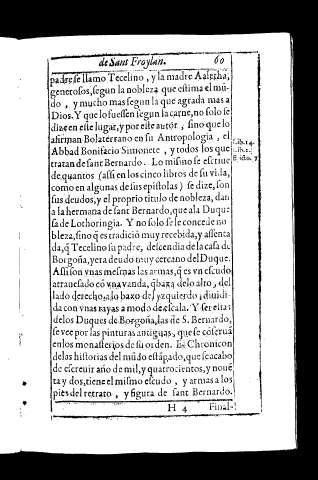 de Sant Froylan. 60
padre se llamo Tecelino, y la madre Aaletha,
generosos, segun la nobleza que estima el mũ-
do, y mucho mas segun la que agrada mas a
Dios. Y que lo fuessen segun la carne, no solo se
dize en este lugar, y por este autor, sino que lo
afirman Bolaterano en su Antropologia, el
Abbad Bonifacio Simonete, y todos los que
tratan de sant Bernardo. Lo mismo se escriue
de quantos (assi en los cinco libros de su vida,
como en algunas de sus epistolas) se dize, son
sus deudos, y el proprio titulo de nobleza, dan
a la hermana de sant Bernardo, que a la Duque
sa de Lothoringia. Y no solo se le concede no-
bleza, sino q̃ es tradiciõ muy recebida, y assenta
da, q̃ Tecelino su padre, descendia de la casa de
Borgoña, y era deudo muy cercano del Duque.
Assi son vnas mesmas las armas, q̃ es vn escudo
atrauesado cõ vna vanda, q̃ baxa de lo alto, del
lado derecho, a lo baxo del yzquierdo, diuidi-
da con vnas rayas a modo de escala. Y ser estas
de los Duques de Borgoña, las de S. Bernardo,
se vee por las pinturas antiguas, que se cõseruã
en los monasterios de su orden. En Chronicon
de las historias del mũdo estãpado, que se acabo
de escreuir año de mil, y quatrocientos, y noue
ta y dos, tiene el mismo escudo, y armas a los
pies del retrato, y figura de sant Bernardo.
H 4 Final-
Lib. 14.